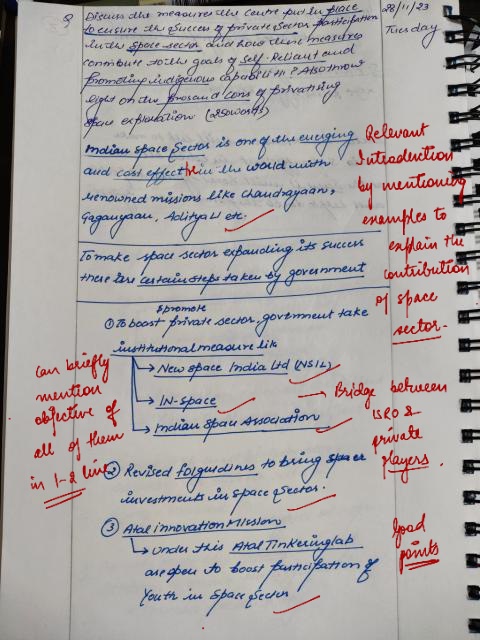 Q Discuss the measures the centre put in place
to ensure the success of private sector participation
in the space sector and how these measures
contribute to the goals of Self-Reliant and
promoting indigenous capabilities? Also throw
light on the pros and cons of privatising
space exploration (250 words)
28/11/23
Tuesday
Indian Space Sector is one of the emerging
and cost effective in the world with
renowned missions like Chandrayaan,
Gaganyaan, Aditya L1 etc.
Relevant
Introduction
by mentioning
examples to
explain the
contribution
of space
sector.
To make space sector expanding its success
there are certain steps taken by government
& promote
① To boost private sector, government take
institutional measure like
→ New space India Ltd (NSIL)
→ IN-Space
→ Indian Span Association
→ Bridge between
ISRO &
private
players.
Can briefly
mention
objective of
all of them
in 1-2 line
② Revised guidlines to bring
investments in space Sector.
③ Atal innovation Mission
↳ Under this Atal Tinkering lab
are open to boost participation of
Youth in Space Sector
Good
points